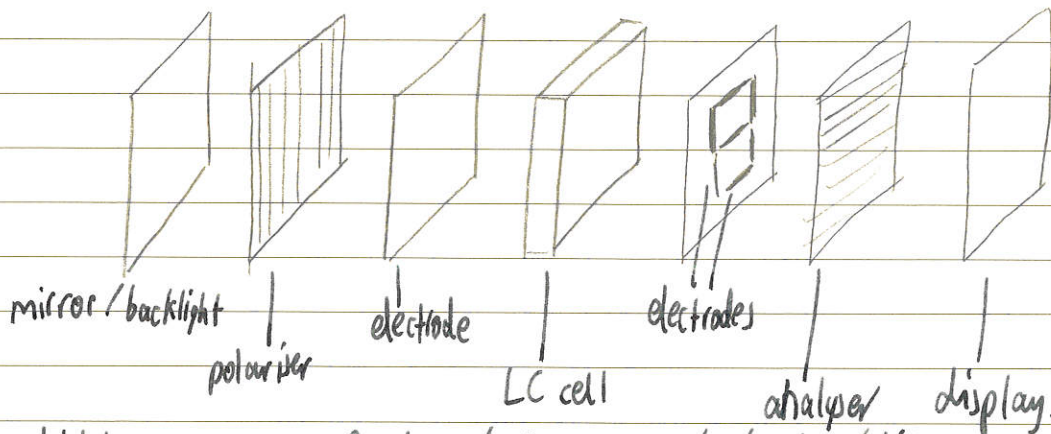 mirror / backlight
polariser
electrode
LC cell
electrodes
analyser
display.